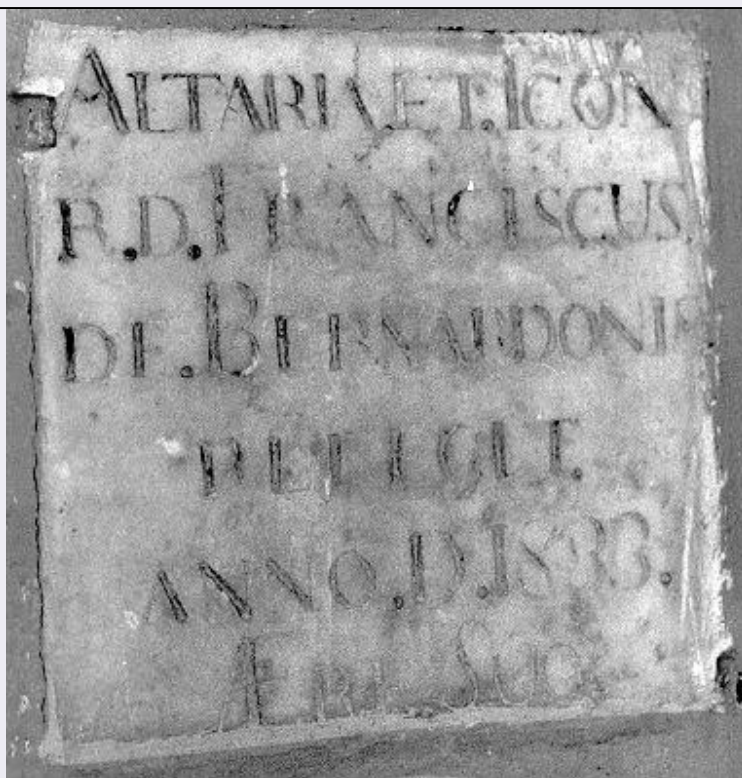 ALTARIA.ET.ICON
R.D.FRANCISCUS
DE.BERNARDONIS
REFECIT.
ANNO.D.1833.
ÆRE SUO